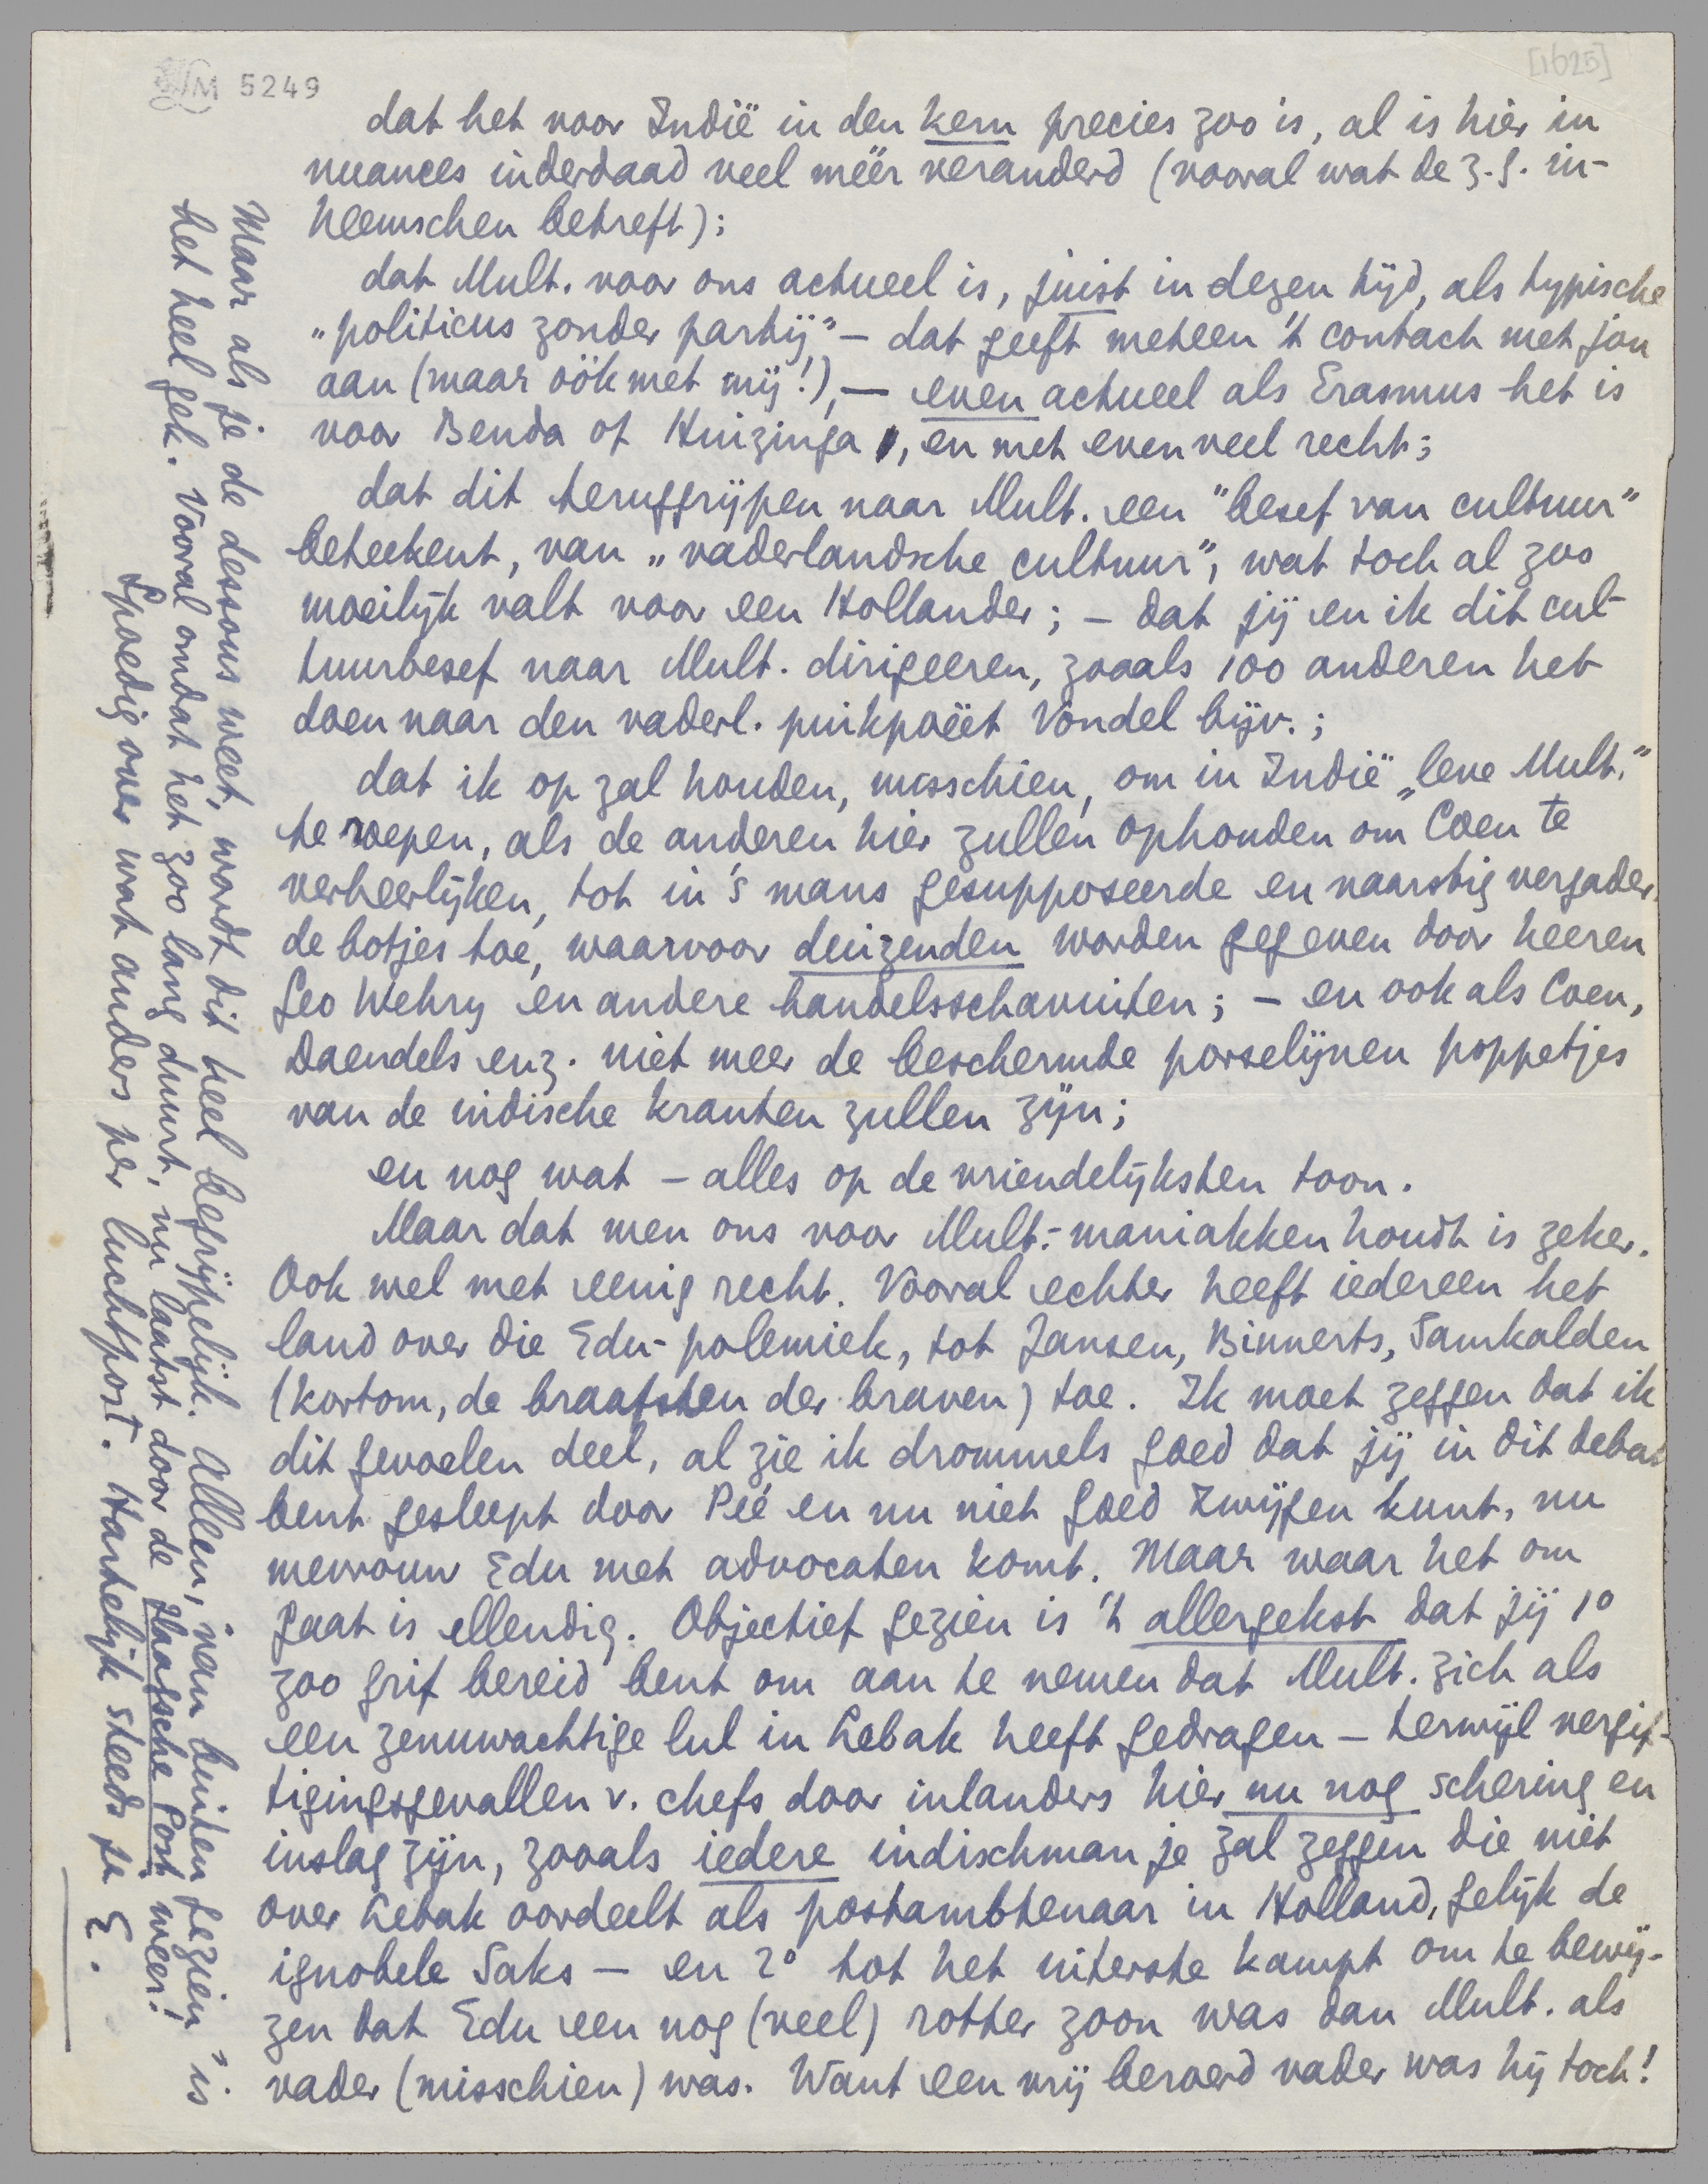 LM 5249
[1625]
dat het voor Indië in den kern precies zoo is, al is hier in
nuances inderdaad veel méér veranderd (vooral wat de z.g. in-
heemschen betreft);
dat Mult. voor ons actueel is, juist in dezen tijd, als typische
"politicus zonder partij" – dat geeft meteen 't contact met jou
aan (maar óók met mij!), – even actueel als Erasmus het is
voor Benda of Huizinga, en met evenveel recht;
dat dit teruggrijpen naar Mult. een "besef van cultuur"
beteekent, van "vaderlandsche cultuur", wat toch al zoo
moeilijk valt voor een Hollander; – dat jij en ik dit cul-
tuurbesef naar Mult. dirigeeren, zooals 100 anderen het
doen naar den vaderl. puikpoëet Vondel bijv.;
dat ik op zal houden, misschien, om in Indië "leve Mult."
te roepen, als de anderen hier zullen ophouden om Coen te
verheerlijken, tot in 's mans gesupposeerde en naarstig vergader-
de botjes toe, waarvoor duizenden worden gegeven door heeren
Geo Wehry en andere handelsschavuiten; – en ook als Coen,
Daendels enz. niet meer de beschermde porselijnen poppetjes
van de indische kranten zullen zijn;
en nog wat – alles op de vriendelijksten toon.
Maar dat men ons voor Mult.-maniakken houdt is zeker.
Ook wel met eenig recht. Vooral echter heeft iedereen het
land over die Edu-polemiek, tot Jansen, Binnerts, Samkalden
(kortom, de braafsten der braven) toe. Ik moet zeggen dat ik
dit gevoelen deel, al zie ik drommels goed dat jij in dit debat
bent gesleept door Pée en nu niet goed zwijgen kunt, nu
mevrouw Edu met advocaten komt. Maar waar het om
gaat is ellendig. Objectief gezien is 't allergekst dat jij 1°
zoo grif bereid bent om aan te nemen dat Mult. zich als
een zenuwachtige lul in Lebak heeft gedragen – terwijl vergif-
tigingsgevallen v. chefs door inlanders hier nu nog schering en
inslag zijn, zooals iedere indischman je zal zeggen die niet
over Lebak oordeelt als postambtenaar in Holland, gelijk de
ignobele Saks – en 2° tot het uiterste kampt om te bewij-
zen dat Edu een nog (veel) rotter zoon was dan Mult. als
vader (misschien) was. Want een vrij beroerd vader was hij toch!
Maar als je de dessous weet, wordt dit heel begrijpelijk. Alleen, "van buiten gezien" is
het heel gek. Vooral omdat het zoo lang duurt, nu laatst door de Haagsche Post weer!
Spoedig over wat anders per luchtpost. Hartelijk steeds je E.